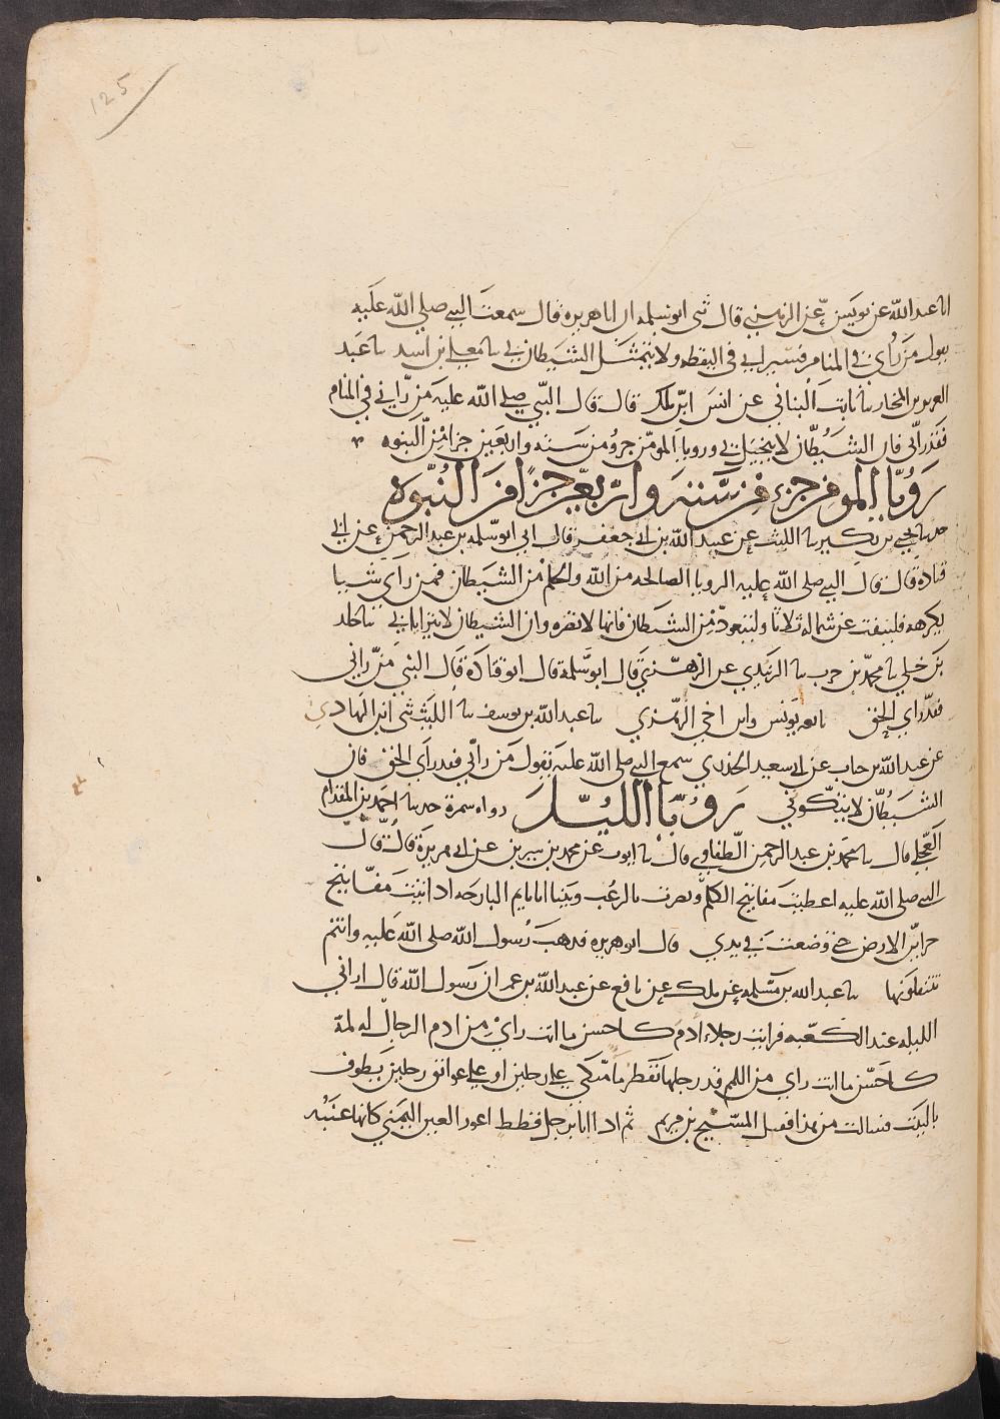 125
انا عبد الله عن يونس عن الزهري قال ثني ابو سلمه ان ابا هريره قال سمعت النبي صلى الله عليه
يقول من رآني في المنام فسيراني في اليقظه ولا يتمثل الشيطان بي نا معلى بن اسد نا عبد
العزيز بن المختار نا ثابت البناني عن انس ابن ملك قال قال النبي صلى الله عليه من رآني في المنام
فقد رآني فان الشيطان لا يتخيل بي ورويا المومن جزؤ من سته واربعين جزا من النبوه
رؤيا المومن جزء من سته واربعين جزا من النبوه
حدثنا يحيى بن بكير نا الليث عن عبيد الله بن ابي جعفر قال اني ابو سلمه بن عبد الرحمن عن ابي
قتادة قال قال النبي صلى الله عليه الرويا الصالحه من الله والحلم من الشيطان فمن راى شيا
يكرهه فلينفث عن شماله ثلاثا وليتعوذ من الشيطان فانها لا تضره وان الشيطان لا يتزايا بي نا خلد
بن خلي نا محمد بن حرب نا الزبيدي عن الزهري قال ابو سلمة قال ابو قتادة قال النبي من رآني
فقد راى الحق تابعه يونس وابن اخي الزهري نا عبد الله بن يوسف نا الليث ثني ابن الهادي
عن عبد الله بن خباب عن ابي سعيد الخدري سمع النبي صلى الله عليه يقول من رآني فقد راى الحق فان
الشيطان لا يتكوني رؤيا الليل رواه سمرة حدثنا احمد بن المقدام
العجلي قال نا محمد بن عبد الرحمن الطفاوي قال نا ايوب عن محمد بن سيرين عن ابي هريرة قال قال
النبي صلى الله عليه اعطيت مفاتيح الكلم ونصرت بالرعب وبينا انا نايم البارحه اذ اتيت مفاتيح
خزاين الارض حتى وضعت في يدي قال ابو هريره فذهب رسول الله صلى الله عليه وانتم
تنتقلونها نا عبد الله بن مسلمه عن ملك عن نافع عن عبد الله بن عمر ان رسول الله قال اراني
الليله عند الكعبه فرايت رجلا ادم كاحسن ما انت راي من ادم الرجال له لمة
كاحسن ما انت راي من اللمم قد رجلها تقطر ما متكي على رجلين او على عواتق رجلين يطوف
بالبيت فسالت من هذا فقيل المسيح بن مريم ثم اذا انا برجل قطط اعور العين اليمنى كانها عنبه